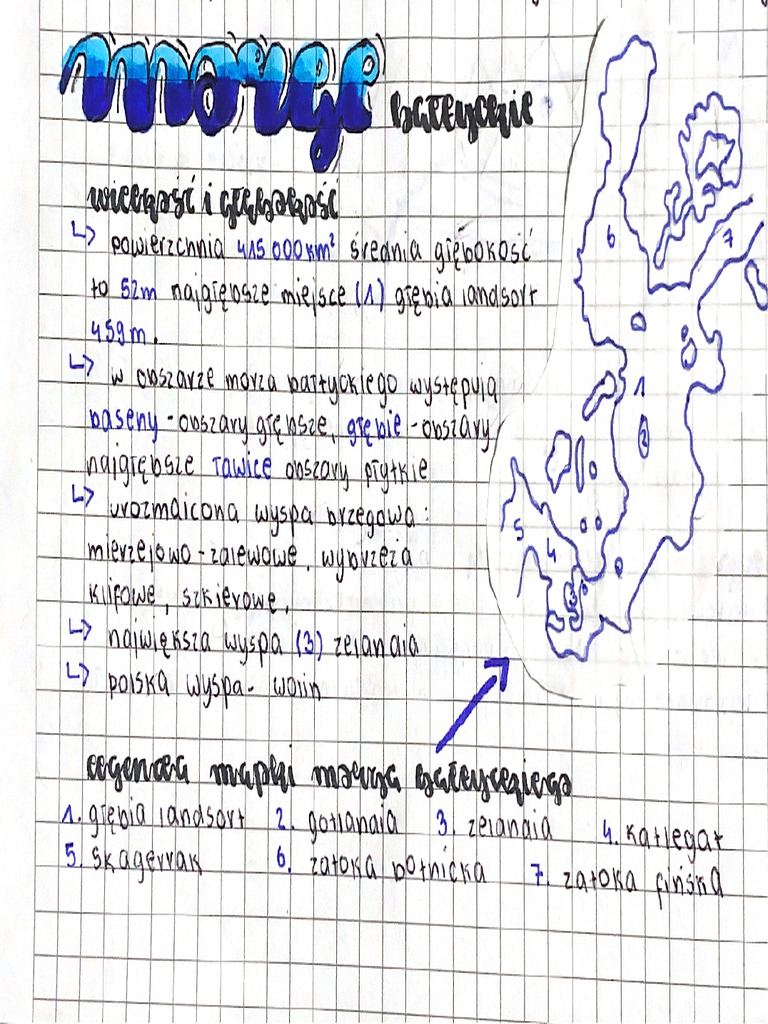 morze bałtyckie
wielkość i głębokość
↳ powierzchnia 415 000km² średnia głębokość
to 52m najgłębsze miejsce (1) głębia landsort
459m.
↳ w obszarze morza bałtyckiego występują
baseny - obszary głębsze, głębie - obszary
najgłębsze ławice obszary płytkie
↳ urozmaicona wyspa brzegowa:
mierzejowo - zalewowe, wybrzeża
klifowe, szkierowe,
↳ największa wyspa (3) zelandia
↳ polska wyspa - wolin
legenda mapki morza bałtyckiego
1. głębia landsort 2. gotlandia 3. zelandia 4. kattegat
5. skagerrak 6. zatoka botnicka 7. zatoka fińska
6
7
1
2
5
4
3